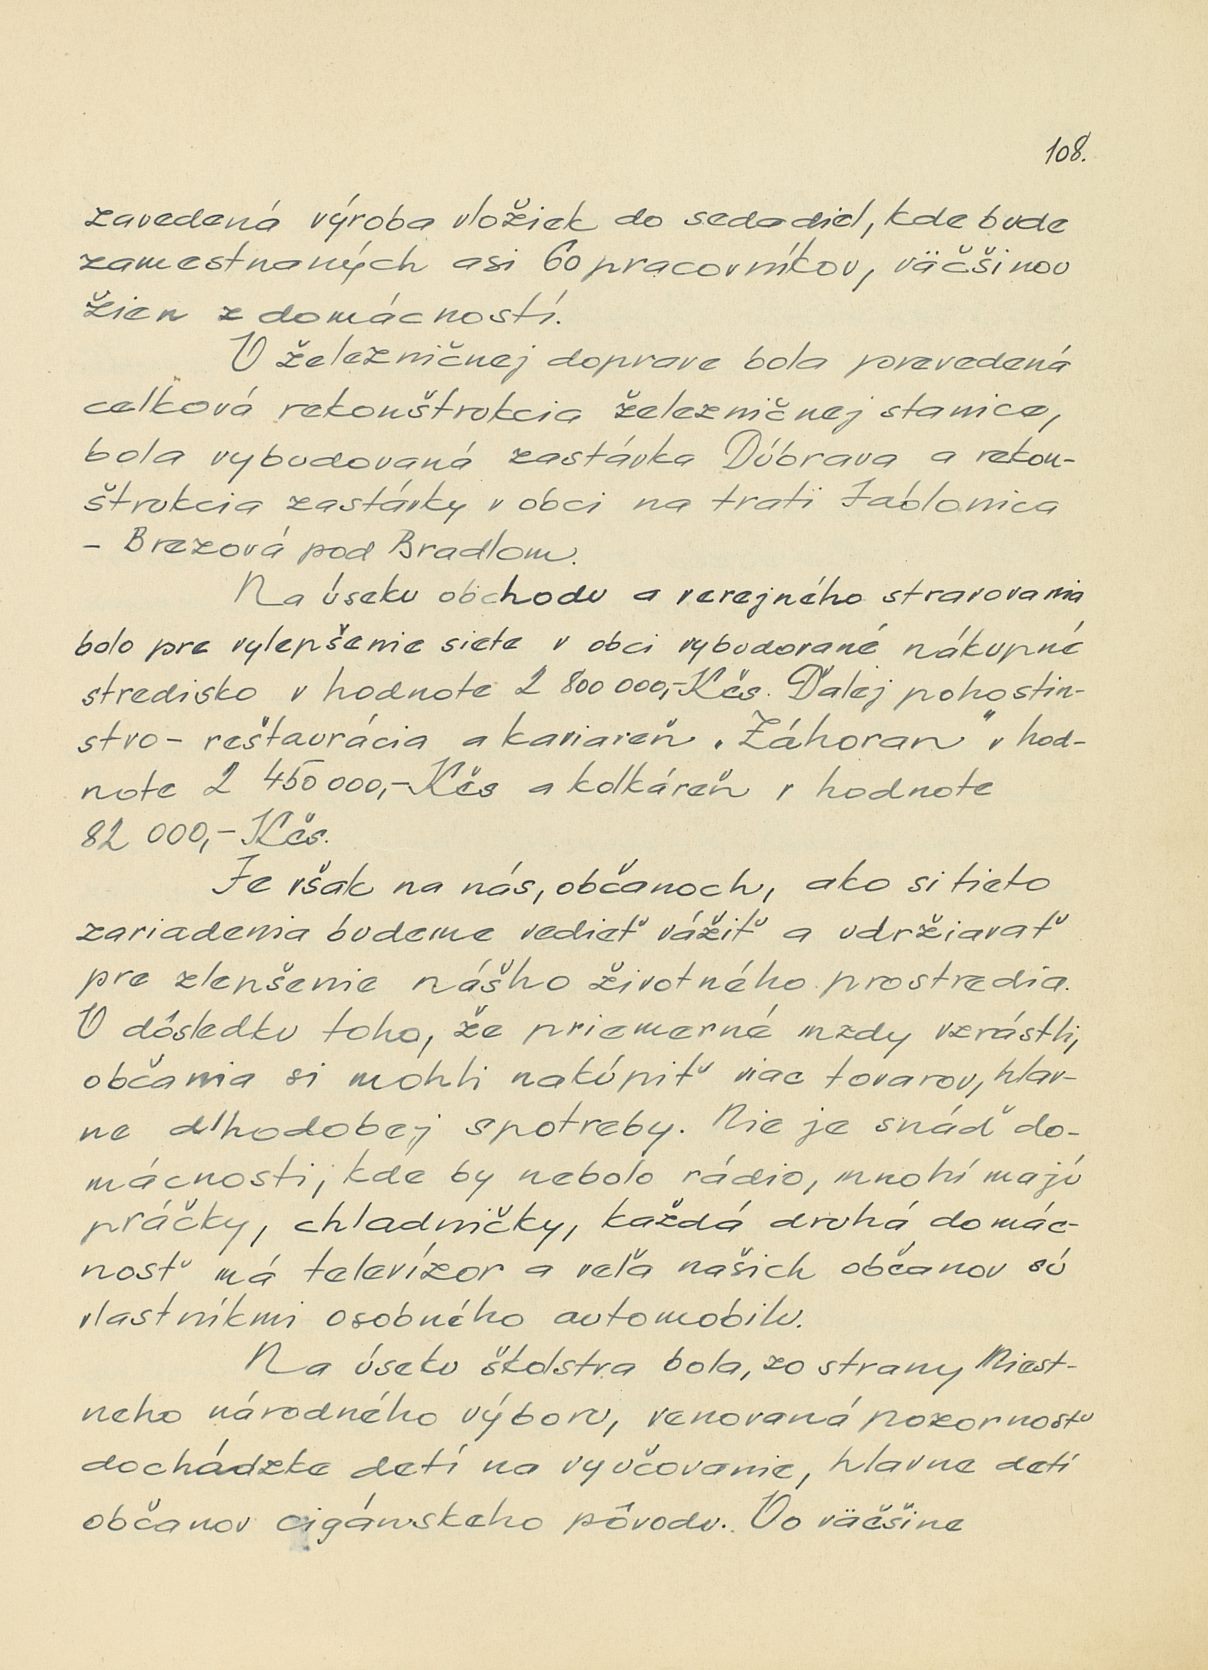 108.
zavedená výroba vložiek do sedadiel, kde bude
zamestnaných asi 60 pracovníkov, väčšinou
žien z domácností.
V železničnej doprave bola prevedená
celková rekonštrukcia železničnej stanice,
bola vybudovaná zastávka Dúbrava a rekon-
štrukcia zastávky v obci na trati Jablonica
- Brezová pod Bradlom.
Na úseku obchodu a verejného stravovania
bolo pre vylepšenie siete v obci vybudované nákupné
stredisko v hodnote 2 800 000,- Kčs. Ďalej pohostin-
stvo - reštaurácia a kaviareň "Záhoran" v hod-
note 2 450 000,- Kčs a kolkáreň v hodnote
82 000,- Kčs.
Je však na nás, občanoch, ako si tieto
zariadenia budeme vedieť vážiť a udržiavať
pre zlepšenie nášho životného prostredia.
V dôsledku toho, že priemerné mzdy vzrástli,
občania si mohli nakúpiť viac tovarov, hlav-
ne dlhodobej spotreby. Nie je snáď do-
mácnosti, kde by nebolo rádio, mnohí majú
práčky, chladničky, každá druhá domác-
nosť má televízor a veľa našich občanov sú
vlastníkmi osobného automobilu.
Na úseku školstva bola, zo strany Miest-
neho národného výboru, venovaná pozornosť
dochádzke detí na vyučovanie, hlavne detí
občanov cigánskeho pôvodu. Vo väčšine